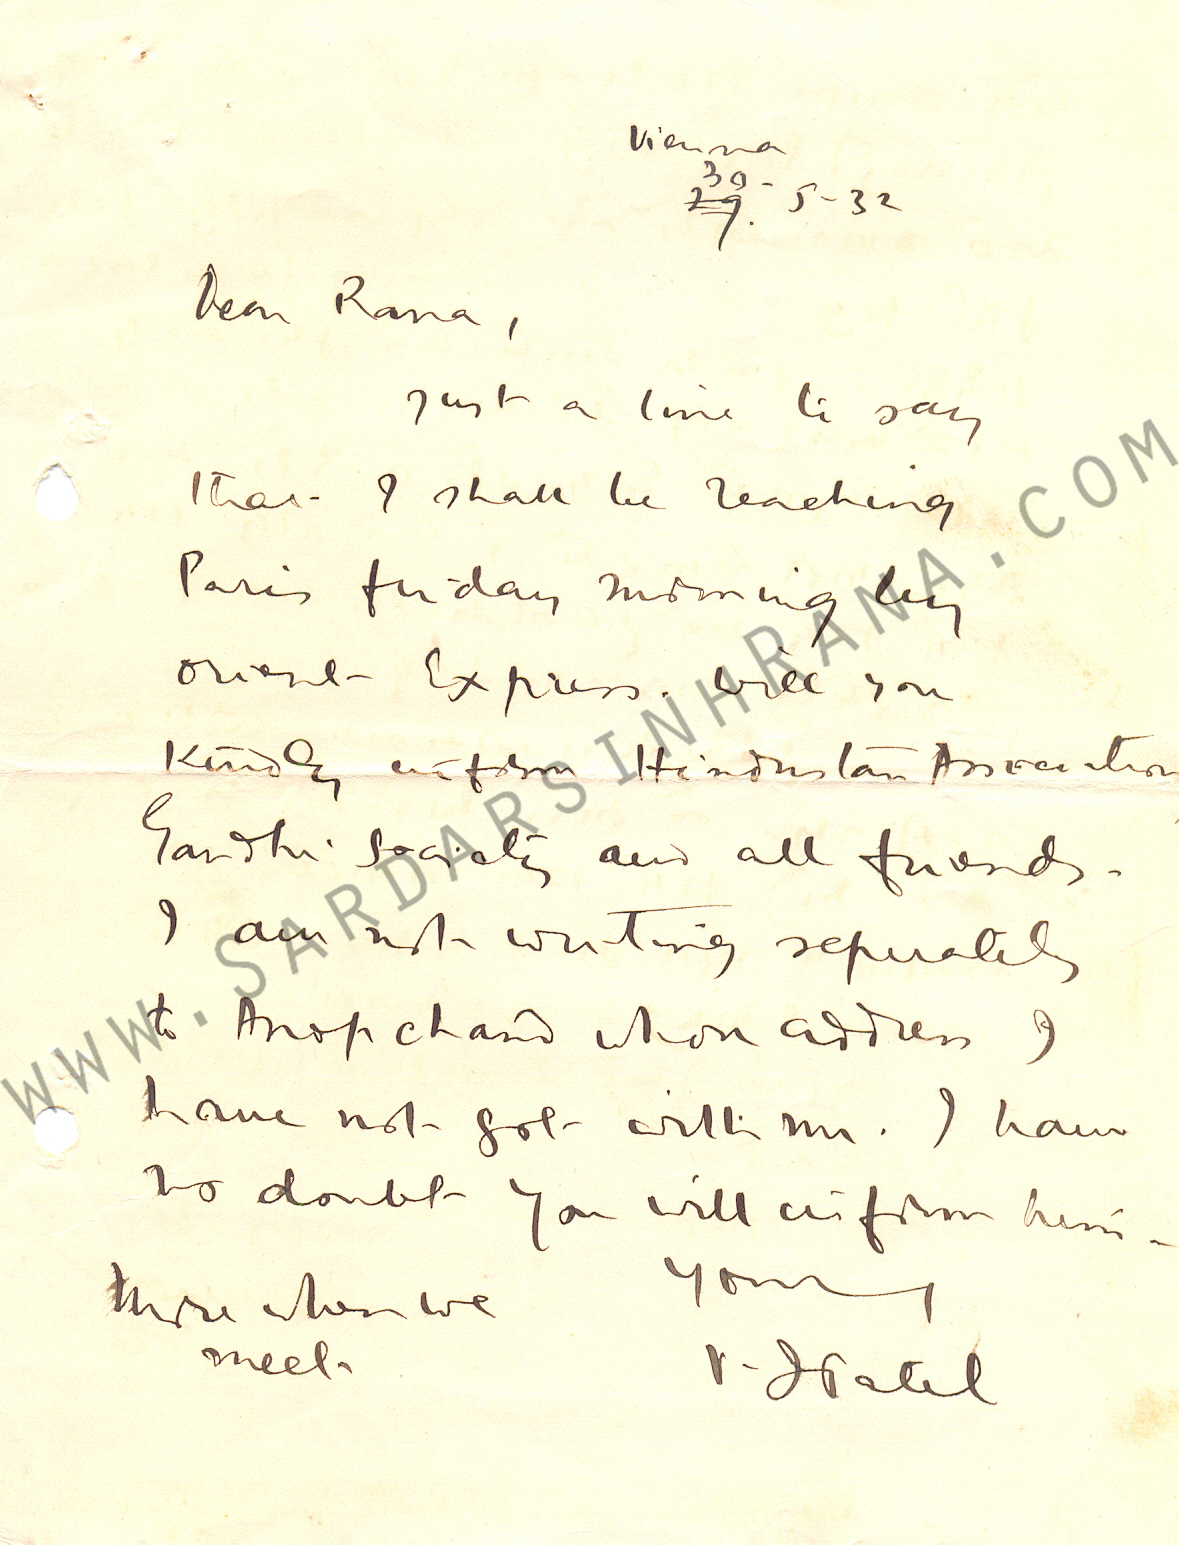 Vienna
30-
29. 5-32
Dear Rana,
Just a line to say
that I shall be reaching
Paris friday morning by
Orient Express. Will you
Kindly inform Hindustan Association
Gandhi Society and all friends.
I am not writing seperately
to Anopchand whose address I
have not got with me. I have
no doubt you will inform him.
More when we
meet
Yours
V. J Patel
WWW.SARDARSINHRANA.COM